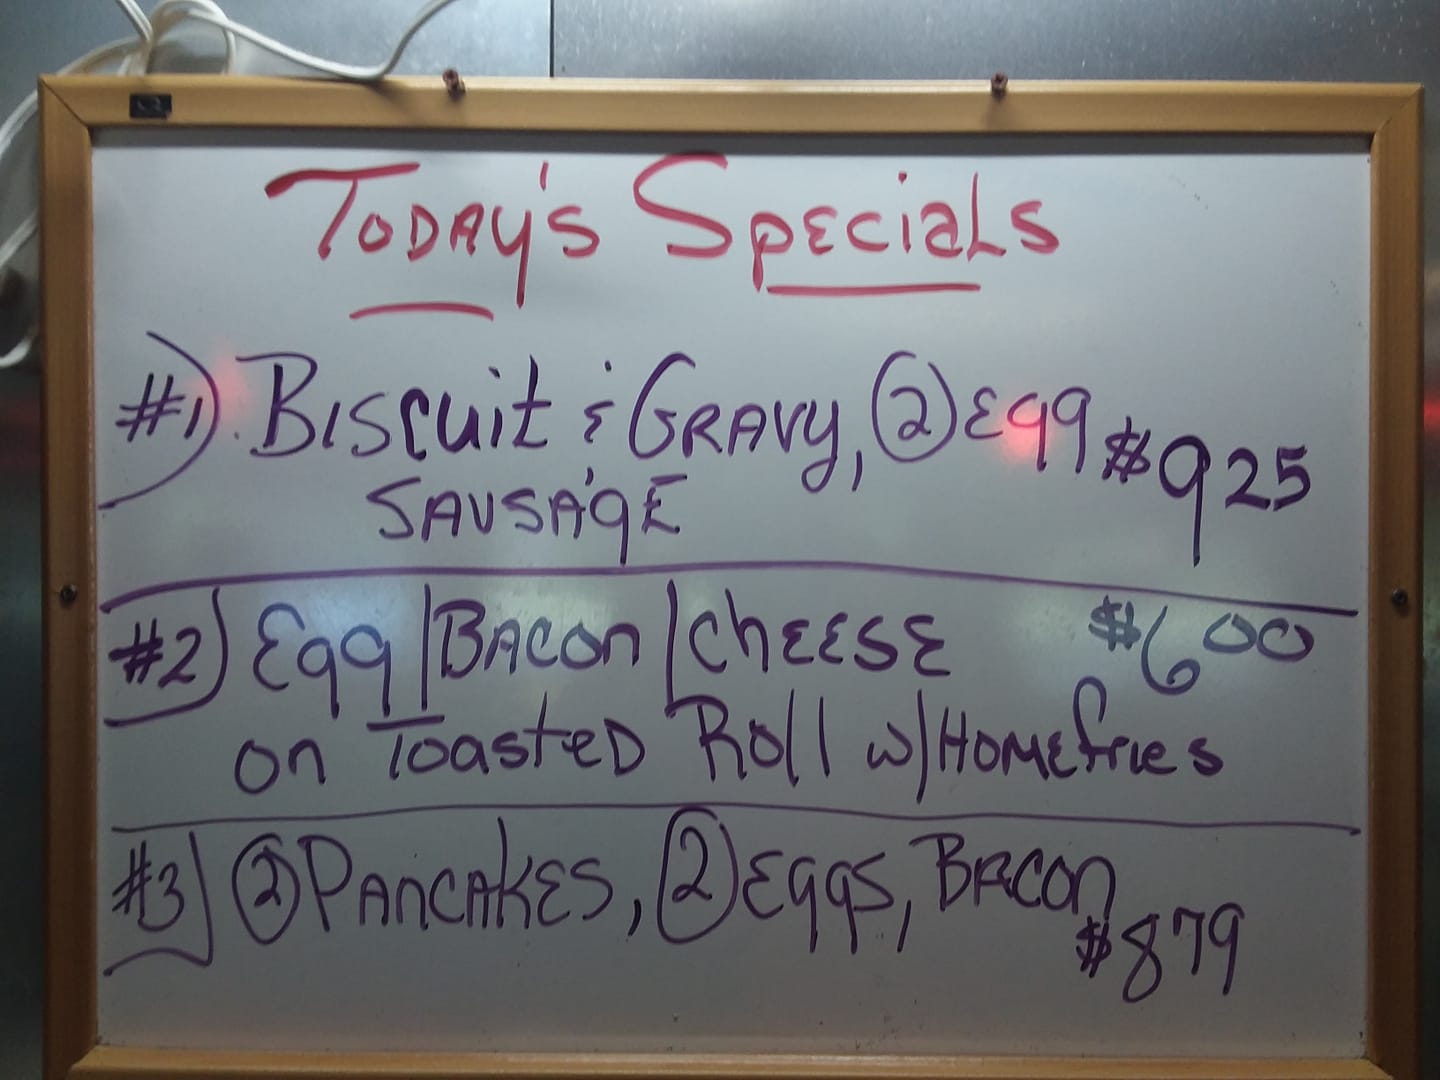 Today's Specials
#1) Biscuit & Gravy, (2) Egg $9 25
Sausage
#2) Egg/Bacon/Cheese $6 00
on Toasted Roll w/Homefries
#3) (2) Pancakes, (2) Eggs, Bacon
$8 79